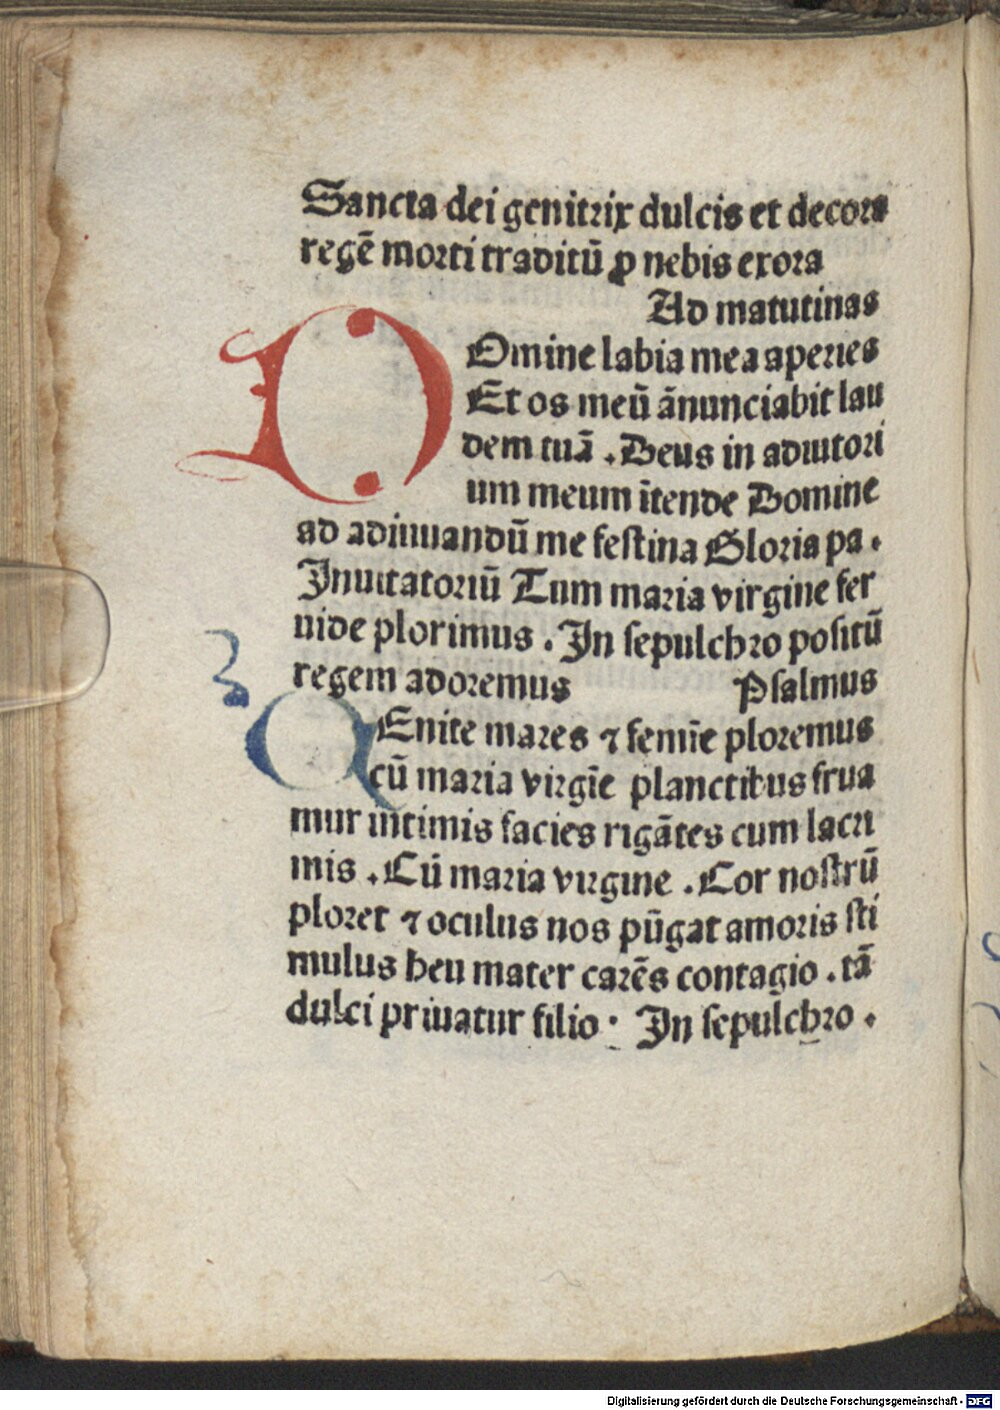 Sancta dei genitrix dulcis et decora
regē morti traditū ꝓ nebis exora
Ad matutinas
DOmine labia mea aperies
Et os meū ānunciabit lau
dem tuā . Deus in adiutori
um meum ītende Domine
ad adiuuandū me festina Gloria pa .
Inuitatoriū Tum maria virgine fer
uide plorimus . In sepulchro positū
regem adoremus Psalmus
Enite mares ⁊ femīe ploremus
cū maria virgīe planctibus frua
mur intimis facies rigātes cum lacri
mis . Cū maria virgine . Cor nostrū
ploret ⁊ oculus nos pūgat amoris sti
mulus heu mater carēs contagio . tā
dulci priuatur filio : In sepulchro .
Digitalisierung gefördert durch die Deutsche Forschungsgemeinschaft - DFG